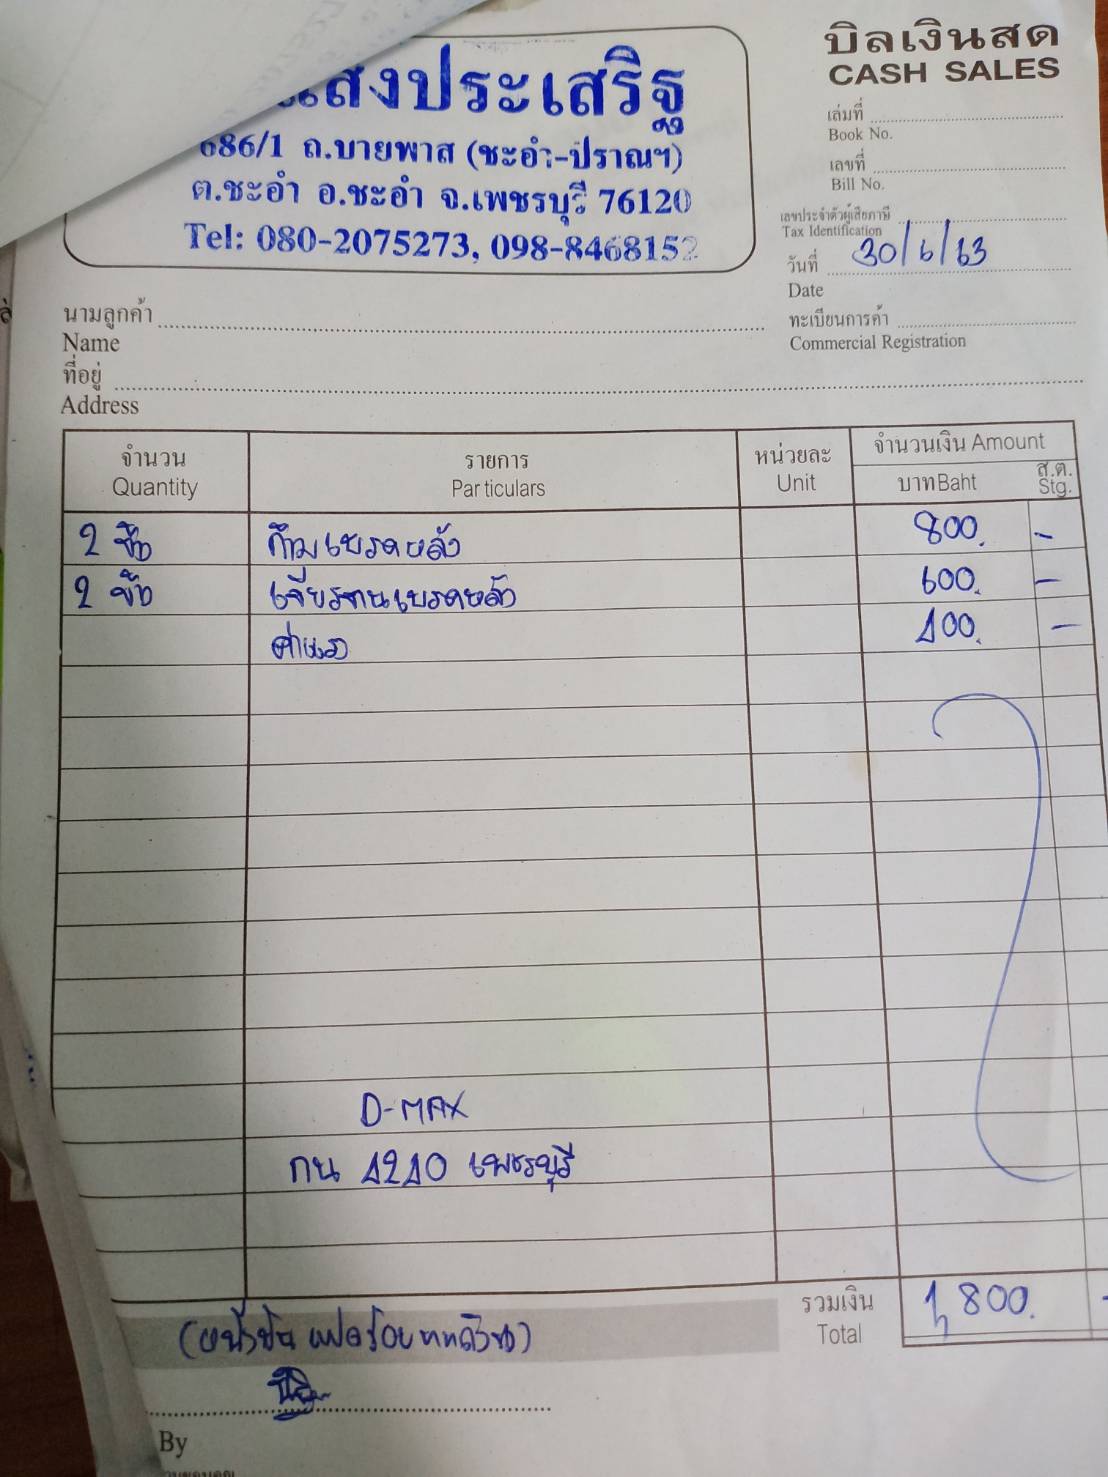 แสงประเสริฐ
686/1 ถ.บายพาส (ชะอำ-ปราณฯ)
ต.ชะอำ อ.ชะอำ จ.เพชรบุรี 76120
Tel: 080-2075273, 098-8468152
บิลเงินสด
CASH SALES
เล่มที่
Book No.
เลขที่
Bill No.
เลขประจำตัวผู้เสียภาษี
Tax Identification
วันที่ 30/6/63
Date
ทะเบียนการค้า
Commercial Registration
นามลูกค้า
Name
ที่อยู่
Address
จำนวน รายการ หน่วยละ จำนวนเงิน Amount
Quantity Particulars Unit บาท Baht ส.ต. Stg.
2 ข้าง ก้ามเบรคหลัง 800. -
2 ข้าง เจียรจานเบรคหลัง 600. -
ค่าแรง 400. -
D-MAX
กน 4240 เพชรบุรี
รวมเงิน 1,800. -
Total
By